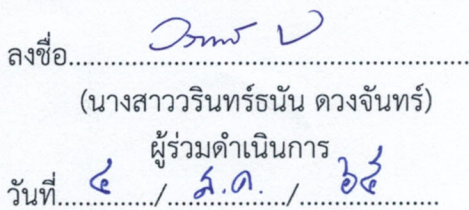 ลงชื่อ........................................................
(นางสาววรินทร์ธนัน ดวงจันทร์)
ผู้ร่วมดำเนินการ
วันที่.....๔...../....ส.ค...../.....๖๕.....